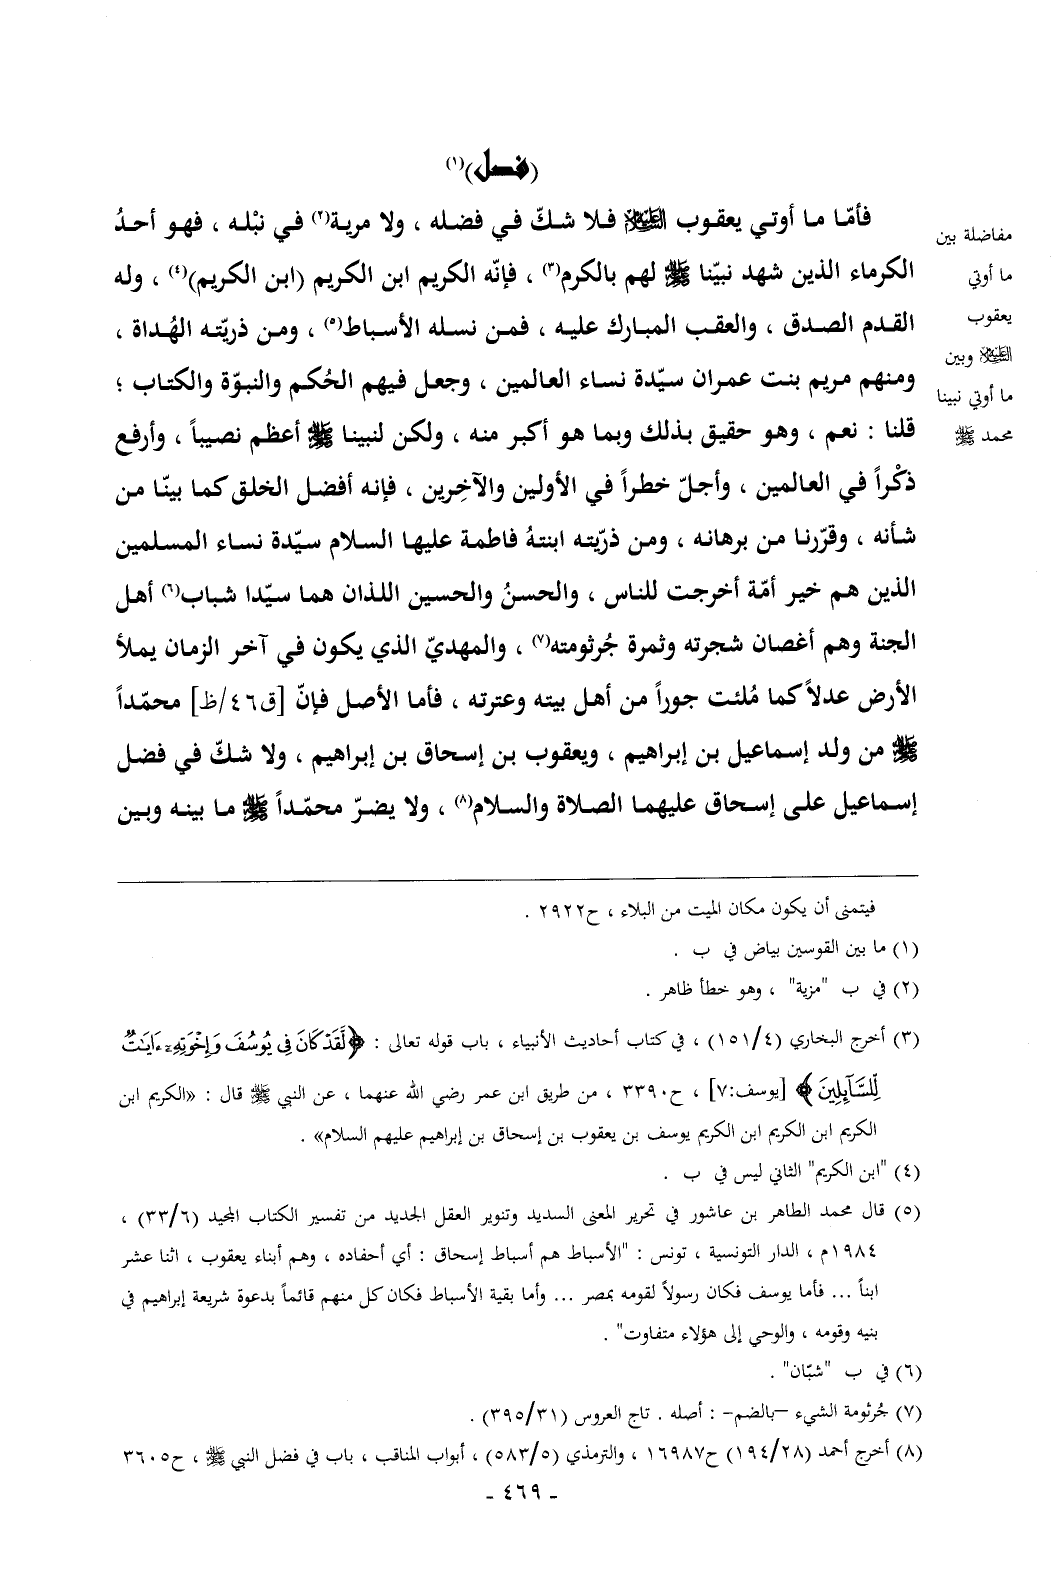 (فصل)(١)
فأمّا ما أوتي يعقوب عليه السلام فلا شكّ في فضله ، ولا مرية(٢) في نبْله ، فهو أحدُ
الكرماء الذين شهد نبيّنا ﷺ لهم بالكرم(٣) ، فإنّه الكريم ابن الكريم (ابن الكريم)(٤) ، وله
القدم الصدق ، والعقب المبارك عليه ، فمن نسله الأسباط(٥) ، ومن ذريّته الهُداة ،
ومنهم مريم بنت عمران سيّدة نساء العالمين ، وجعل فيهم الحُكم والنبوّة والكتاب ؛
قلنا : نعم ، وهو حقيق بذلك وبما هو أكبر منه ، ولكن لنبينا ﷺ أعظم نصيباً ، وأرفع
ذكْراً في العالمين ، وأجلّ خطراً في الأولين والآخِرين ، فإنه أفضل الخلق كما بينّا من
شأنه ، وقرّرنا من برهانه ، ومن ذريّته ابنتهُ فاطمة عليها السلام سيّدة نساء المسلمين
الذين هم خير أمّة أخرجت للناس ، والحسنُ والحسين اللذان هما سيّدا شباب(٦) أهل
الجنة وهم أغصان شجرته وثمرة جُرثومته(٧) ، والمهديّ الذي يكون في آخر الزمان يملأ
الأرض عدلاً كما مُلئت جوراً من أهل بيته وعترته ، فأما الأصل فإنّ [ق٤٦/ظ] محمّداً
ﷺ من ولد إسماعيل بن إبراهيم ، ويعقوب بن إسحاق بن إبراهيم ، ولا شكّ في فضل
إسماعيل على إسحاق عليهما الصلاة والسلام(٨) ، ولا يضرّ محمّداً ﷺ ما بينه وبين
مفاضلة بين
ما أوتي
يعقوب
عليه السلام وبين
ما أوتي نبينا
محمد ﷺ
فيتمنى أن يكون مكان الميت من البلاء ، ح٢٩٢٢ .
(١) ما بين القوسين بياض في ب .
(٢) في ب "مزية" ، وهو خطأ ظاهر .
(٣) أخرج البخاري (١٥١/٤) ، في كتاب أحاديث الأنبياء ، باب قوله تعالى : ﴿لَّقَدْ كَانَ فِي يُوسُفَ وَإِخْوَتِهِۦٓ ءَايَٰتٌ
لِّلسَّآئِلِينَ﴾ [يوسف:٧] ، ح٣٣٩٠ ، من طريق ابن عمر رضي الله عنهما ، عن النبي ﷺ قال : «الكريم ابن
الكريم ابن الكريم ابن الكريم يوسف بن يعقوب بن إسحاق بن إبراهيم عليهم السلام» .
(٤) "ابن الكريم" الثاني ليس في ب .
(٥) قال محمد الطاهر بن عاشور في تحرير المعنى السديد وتنوير العقل الجديد من تفسير الكتاب المجيد (٣٣/٦) ،
١٩٨٤م ، الدار التونسية ، تونس : "الأسباط هم أسباط إسحاق : أي أحفاده ، وهم أبناء يعقوب ، اثنا عشر
ابناً ... فأما يوسف فكان رسولاً لقومه بمصر ... وأما بقية الأسباط فكان كل منهم قائماً بدعوة شريعة إبراهيم في
بنيه وقومه ، والوحي إلى هؤلاء متفاوت" .
(٦) في ب "شبّان" .
(٧) جُرثومة الشيء –بالضم– : أصله . تاج العروس (٣٩٥/٣١) .
(٨) أخرج أحمد (١٩٤/٢٨) ح١٦٩٨٧ ، والترمذي (٥٨٣/٥) ، أبواب المناقب ، باب في فضل النبي ﷺ ، ح٣٦٠٥
- ٤٦٩ -